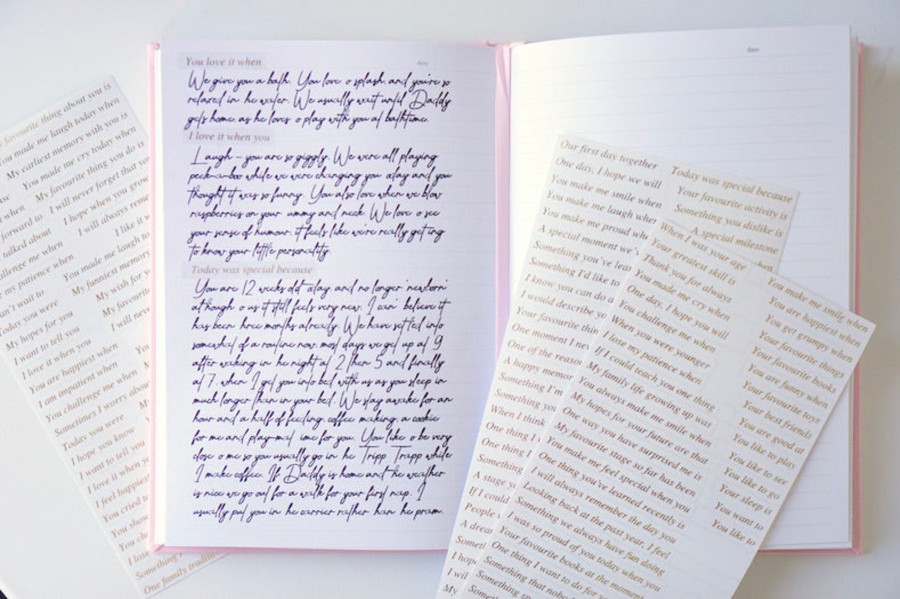 You love it when
date
We give you a bath. You love o splash and you're so
relaxed in he water. We usually wait until Daddy
gets home as he loves o play with you at bathtime.
I love it when you
Laugh - you are so giggly. We were all playing
peek-a-boo while we were changing you oday and you
thought it was so funny. You also love when we blow
raspberries on your ummy and neck. We love o see
your sense of humour, it feels like we're really getting
to know your little personality.
Today was special because
You are 12 weeks old oday and no longer 'newborn'
although o us it still feels very new. I can' believe it
has been hree months already. We have settled into
somewhat of a routine now, most days we get up at 9
after waking in he night at 2 then 5 and finally
at 7 when I get you into bed with us as you sleep in
much longer than in your bed. We stay awake for an
hour and a half of feeding, coffee making, a cookie
for me and play-mat ime for you. You like o be very
close o me so you usually go in he Tripp Trapp while
I make coffee. If Daddy is home and he weather
is nice we go out for a walk for your first nap. I
usually put you in he carrier rather han he pram.
date
favourite thing about you is
You made me laugh today when
My earliest memory with you is
You made me cry today when
My favourite thing you do is
I will never forget that you
when
I hope when you grow
forward to
I will always reme
talked about
I like it
challenge me when
my patience when
You made me laugh to
can't wait to
My funniest memory
Today you were
My wish for y
My hopes for you
My favourite
I want to tell you
I will neve
I love it when you
You are happiest when
I am impatient when
You challenge me when
Sometimes I worry about
Today you were
I hope you know
I want to tell you
I love it when you
I feel happiest
You cried to
You show
You ch
I lose
Something
One family tradition
Our first day together
One day, I hope we will
You make me smile when
You make me laugh when
You make me proud when
A special moment we'
Something you've lea
Something I'd like to
I know you can do a
I would describe yo
Your favourite thin
One moment I nev
One of the reaso
A happy memor
Something I'm
Something you
When I think
One thing I
One thing I
Something
A stage y
If I could
People
A drea
Someth
I hope
I wil
My
Today was special because
Your favourite activity is
Something you dislike is
A special milestone
When I was your age
Your greatest skill is
Thank you for always
You made me cry when
One day, I hope you will
You challenge me when
When you were younger
I lose my patience when
If I could teach you one thing
My family life growing up was
You always make me smile when
My hopes for your future are that
One way you have surprised me is
My favourite stage so far has been
You make me feel
One thing you've learned recently is
I will always remember the day you
Looking back at the past year, I feel
Something we always have fun doing
I was so proud of you today when you
Your favourite books at the moment
One thing I want to do for you
Something that nobod
Something
You make me smile when
You are happiest when
You get grumpy when
Your favourite things
Your favourite books
You are funny when
Your favourite toys
Your best friends
You are good at
You like to play
You like to see
You like to go
Your sleep is
You want to
You like to